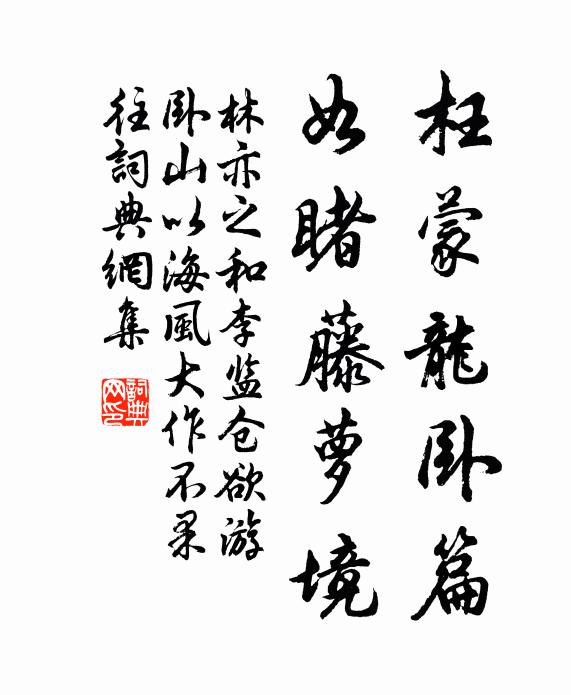 枉蒙龍卧篇
如睹藤萝境
林亦之和李监仓欲游
卧山以海風大作不果
往詞典網集
詞典网印